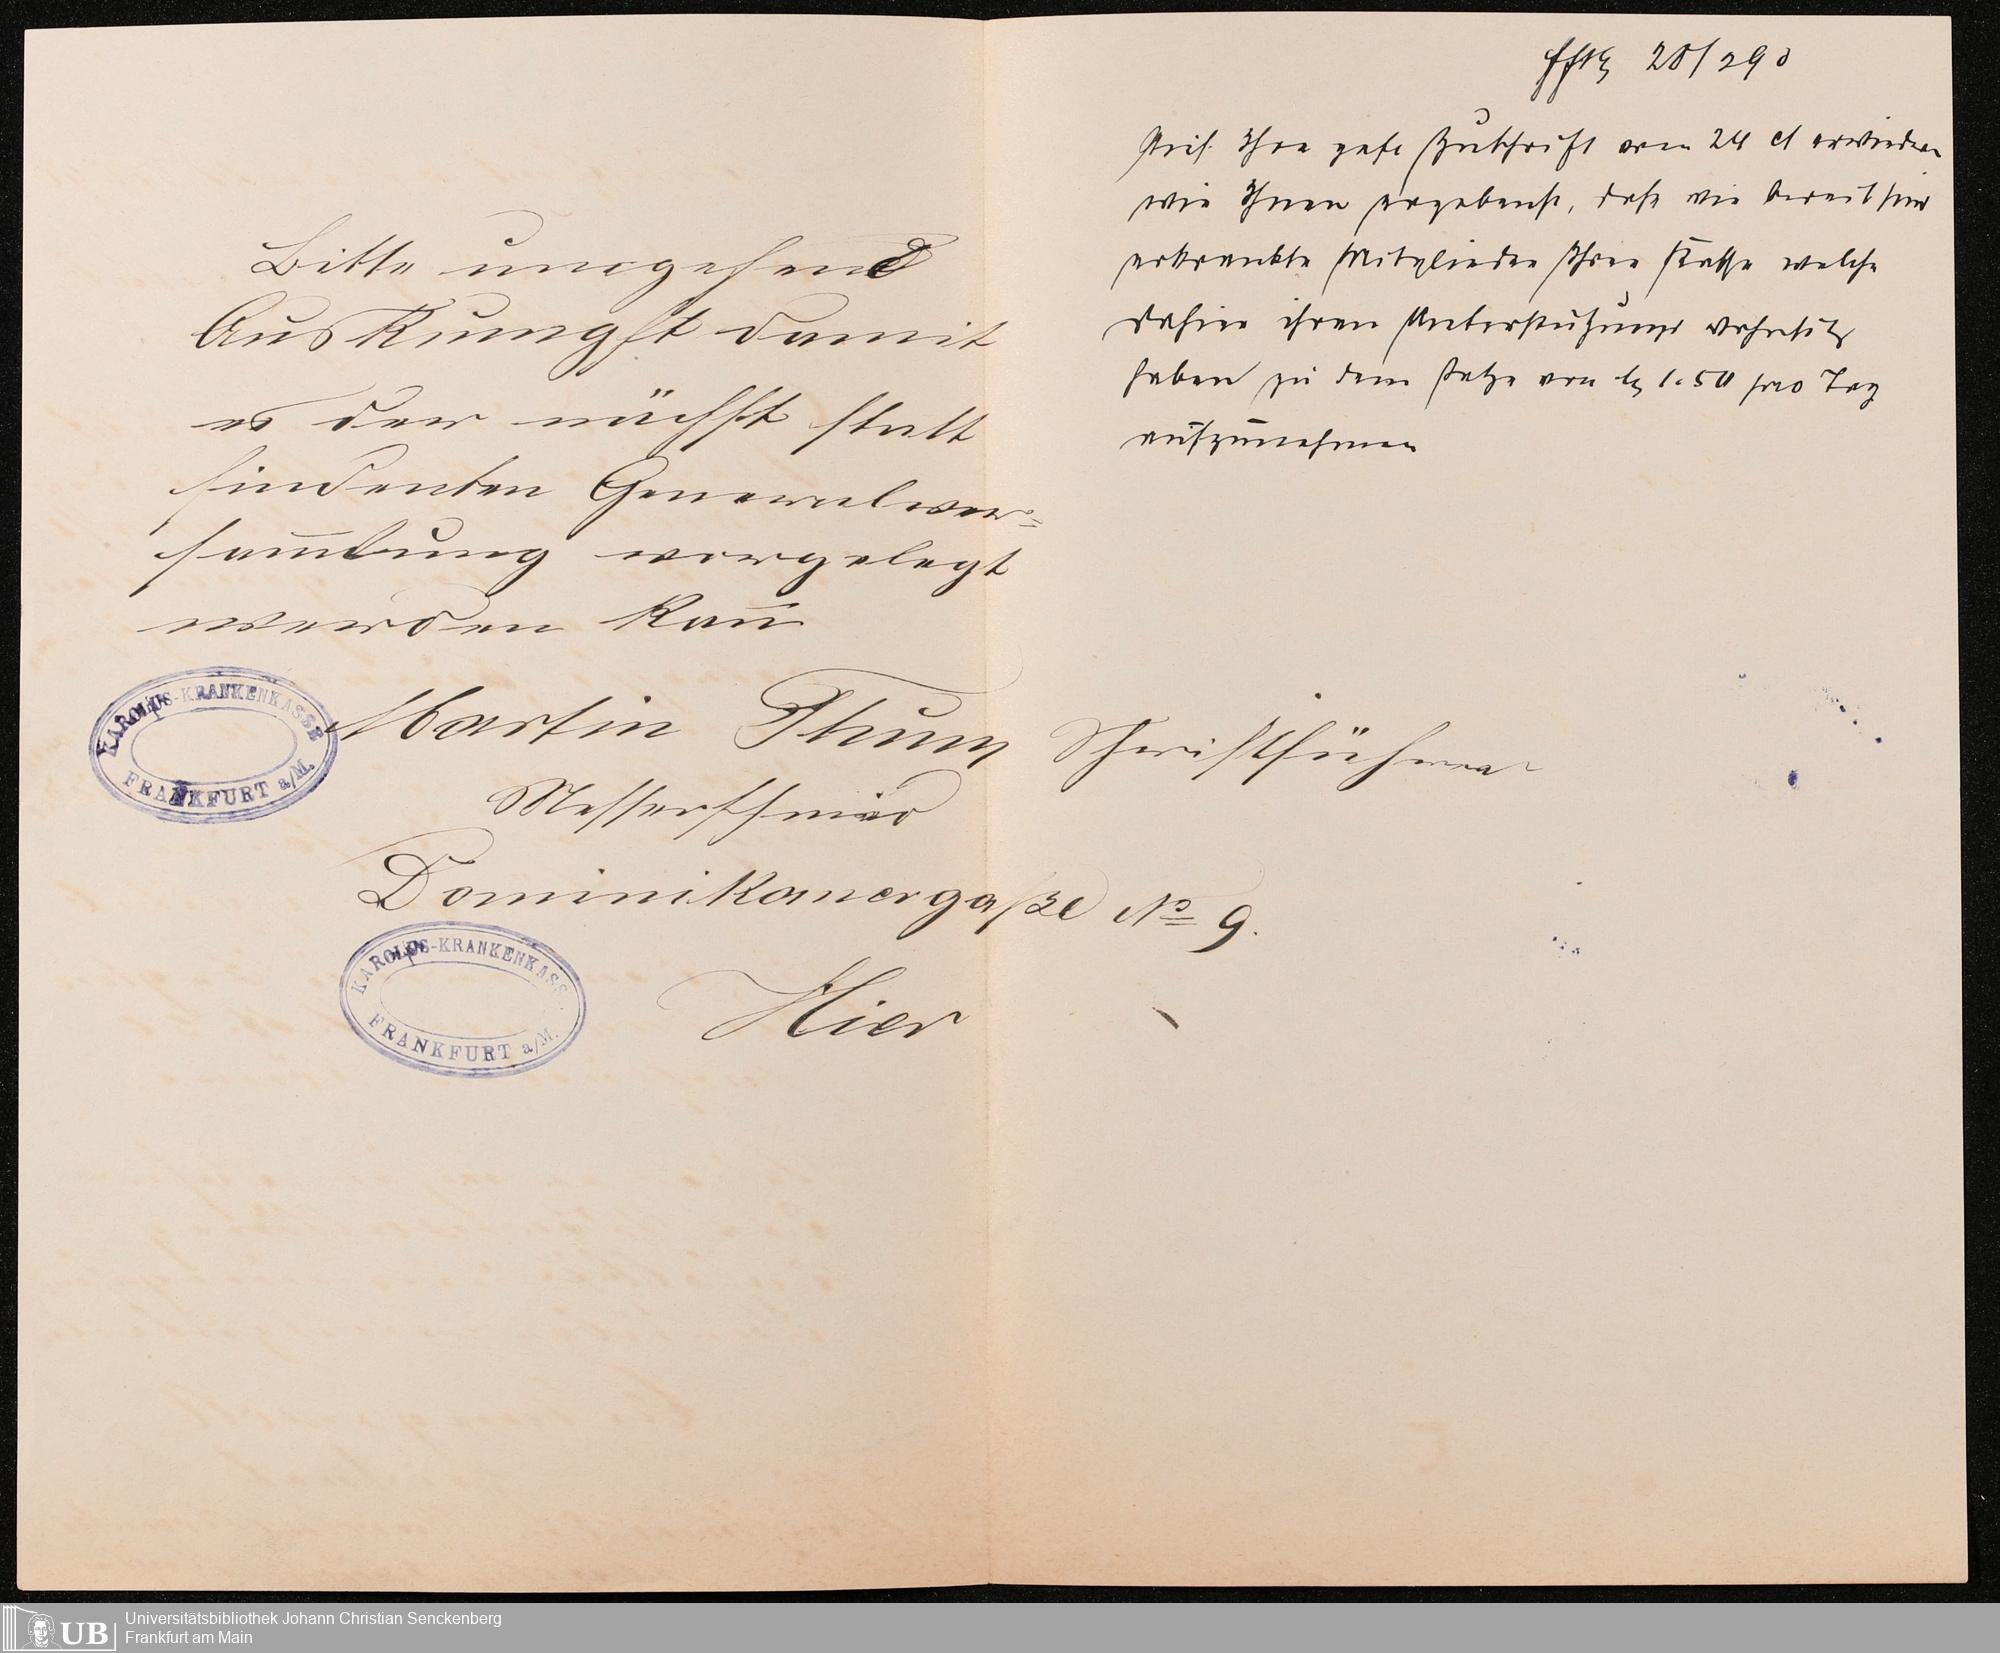 Bitte umgehend
Auskumgft damit
es der nächst statt
findenten Generalver=
sam̅lung vorgelegt
werden kan̅
Martin Thum Schriftführer
Messerschmied
Dominikanergaße No 9.
Hier
KAROLUS-KRANKENKASSE
FRANKFURT a/M.
KAROLUS-KRANKENKASSE
FRANKFURT a/M.
28/2 90
Auf Ihre gefe Zuschrift vom 24 ct erwiedern
wir Ihnen ergebenst, daß wir bereit sind
erkrankte Mitglieder Ihrer Kasse welche
dahier ihren Unterstützungs Wohnsitz
haben zu dem Satze von M 1.50 pro Tag
aufzunehmen
UB
Universitätsbibliothek Johann Christian Senckenberg
Frankfurt am Main